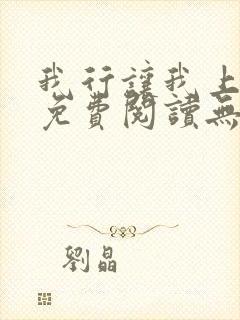 我行讓我上
免費閱讀無
劉晶